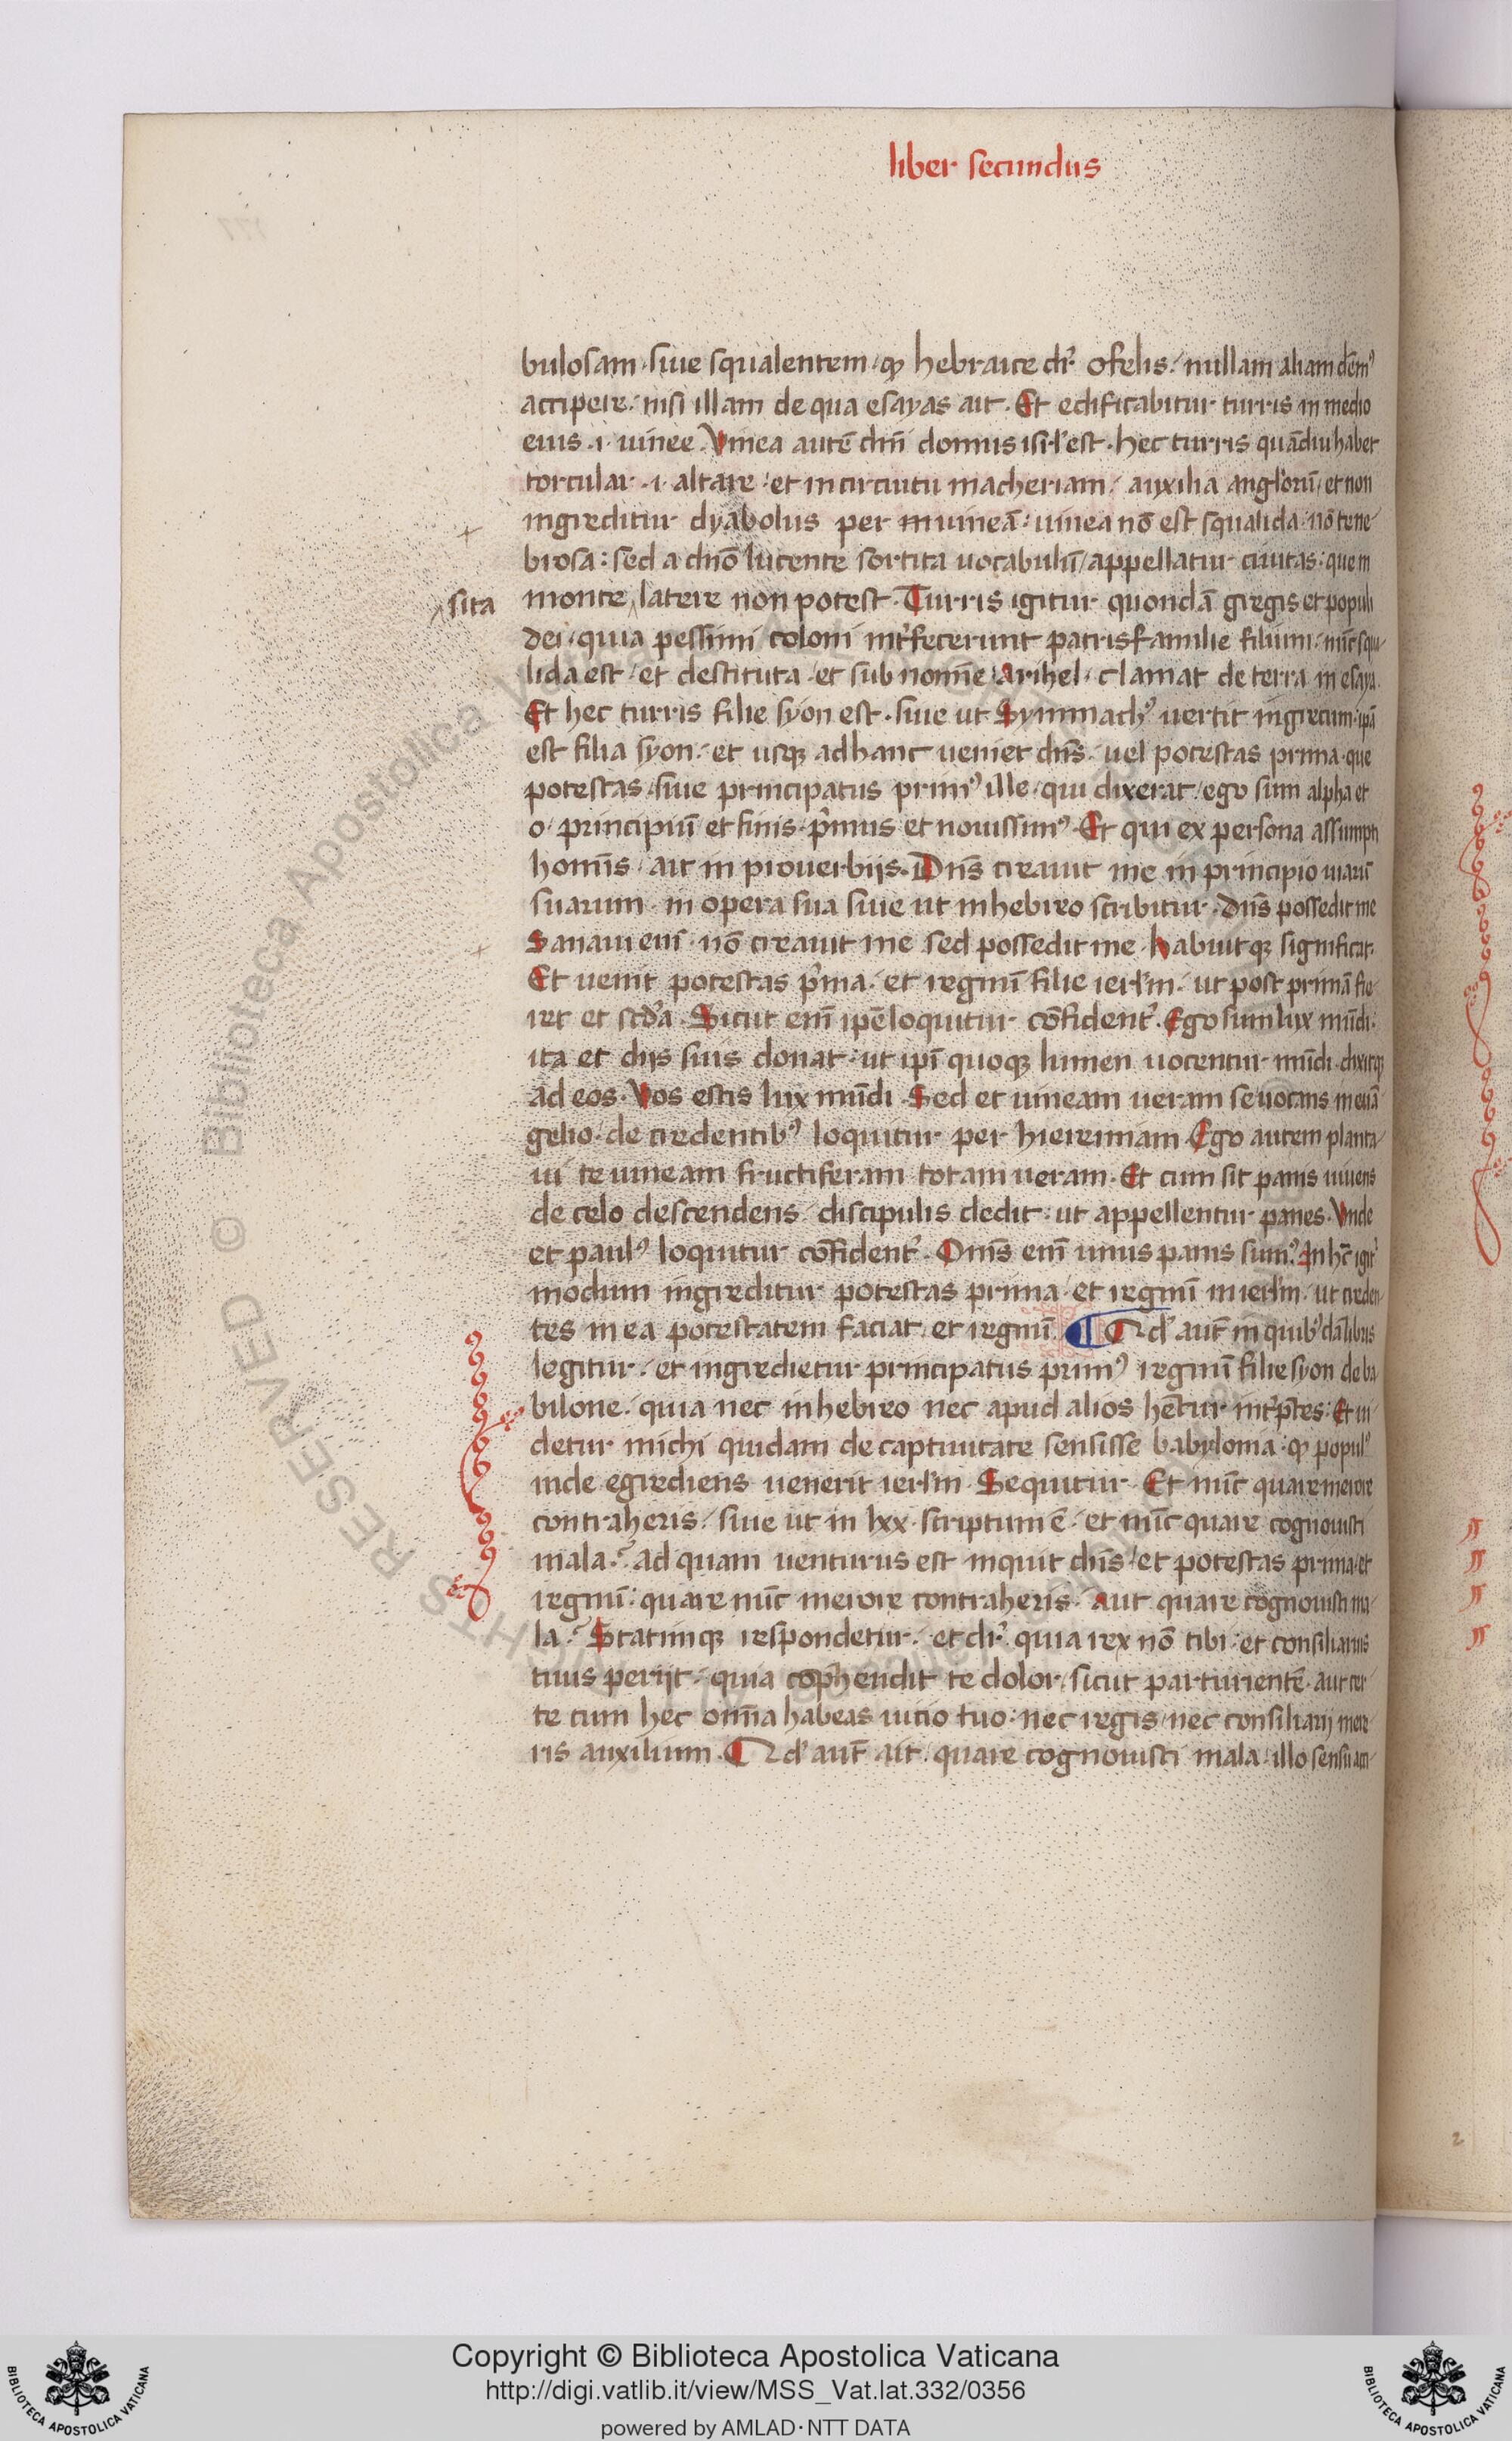 liber secundus
bulosam siue squalentem, qͥ hebraice dr̄ ofelis, nullam aliam dem9
accipere, nisi illam de qua esayas ait. Et edificabitur turris in medio
eius .i. uinee. Vinea autē dn̄i domus isrl̄ est. hec turris quādiu habet
torcular .i. altare, et in circuitu macheriam, auxilia angl̓orū, et non
ingreditur dyabolus per in uineā: uinea nō est squalida, nō tene
brosa: sed a dn̄o lucente sortita uocabulū, appellatur ciuitas: que in
sita
monte latere non potest. Turris igitur quondā gregis et populi
dei, quia pessimi coloni int̓fecerunt patrisfamilie filium, nūc squa
lida est, et destituta, et sub nomīe arihel, clamat de terra in esaya.
Et hec turris filie syon est, siue ut Symmach9 uertit in grecum, ipā
est filia syon, et usqꝫ ad hanc ueniet dn̄s, uel potestas prima, que
potestas, siue principatus prim9 ille, qui dixerat, ego sum alpha et
o, principiū et finis, p̓mus et nouissim9. Et qui ex persona assumpti
homīs, ait in prouerbijs. Dn̄s creauit me in principio uiarū
suarum, in opera sua siue ut in hebreo scribitur. Dn̄s possedit me
Sanani eni nō creauit me sed possedit me habuitqꝫ significat.
Et uenit potestas p̓ma, et regnū filie ierl̄m, ut post primā fie
ret et scd̓a. Sicut enī ipē loquitur cōfident̓. Ego sum lux mūdi.
ita et dijs suis donat, ut ipī quoqꝫ lumen uocentur mūdi, dixitqꝫ
ad eos. Vos estis lux mūdi. Sed et uineam ueram se uocans in euā
gelio, de credentib9 loquitur per hieremiam. Ego autem planta
ui te uineam fructiferam totam ueram. Et cum sit panis uiuens
de celo descendens, discipulis dedit, ut appellentur panes. Vnde
et paul9 loquitur cōfident̓. Om̄s enī unus panis sum9. In hc̄ igit̓
modum ingreditur potestas prima, et regnū in ierl̄m, ut creden
tes in ea potestatem faciat, et regnū. ¶ Qd̓ aut̄ in quib9dā libris
legitur, et ingredietur principatus prim9 regnū filie syon de ba
bilone, quia nec in hebreo nec apud alios hēt̄ur int̓p̄tes: Et ui
detur michi quidam de captiuitate sensisse babylonia, qͥ popul9
inde egrediens uenerit ierl̄m. Sequitur. Et nūc quare merore
contraheris, siue ut in lxx scriptum ē, et nūc quare cognouisti
mala? ad quam uenturus est inquit dn̄s, et potestas prima, et
regnū: quare nūc merore contraheris, aut quare cognouisti ma
la? Statimqꝫ respondetur, et dr̄ quia rex nō tibi, et consiliarius
tuus perijt, quia cōp̓hendit te dolor, sicut parturientē, aut cer
te cum hec omīa habeas uicio tuo, nec regis, nec consiliarij mere
ris auxilium. Qd̓ aut̄ ait, quare cognouisti mala, illo sensu am
Copyright © Biblioteca Apostolica Vaticana
http://digi.vatlib.it/view/MSS_Vat.lat.332/0356
powered by AMLAD·NTT DATA